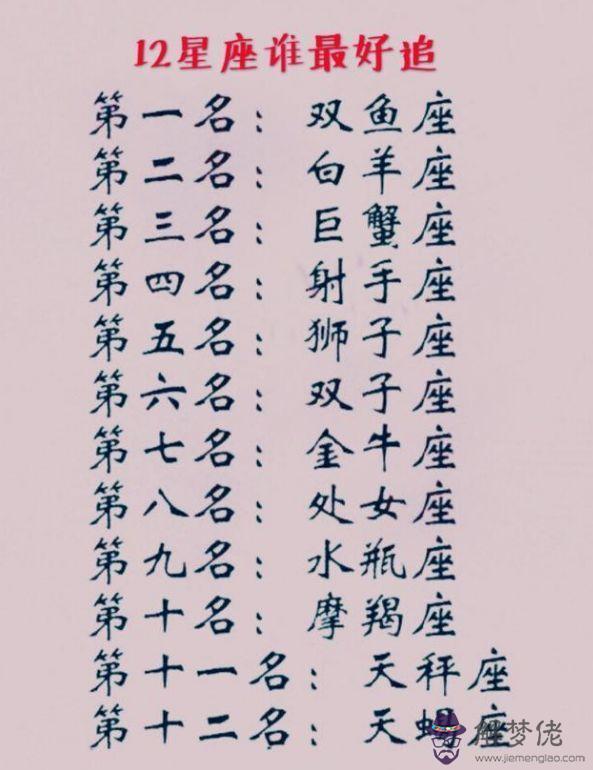 12星座谁最好追
第一名：双鱼座
第二名：白羊座
第三名：巨蟹座
第四名：射手座
第五名：狮子座
第六名：双子座
第七名：金牛座
第八名：处女座
第九名：水瓶座
第十名：摩羯座
第十一名：天秤座
第十二名：天蝎座
解梦佬
www.jiemenglao.com